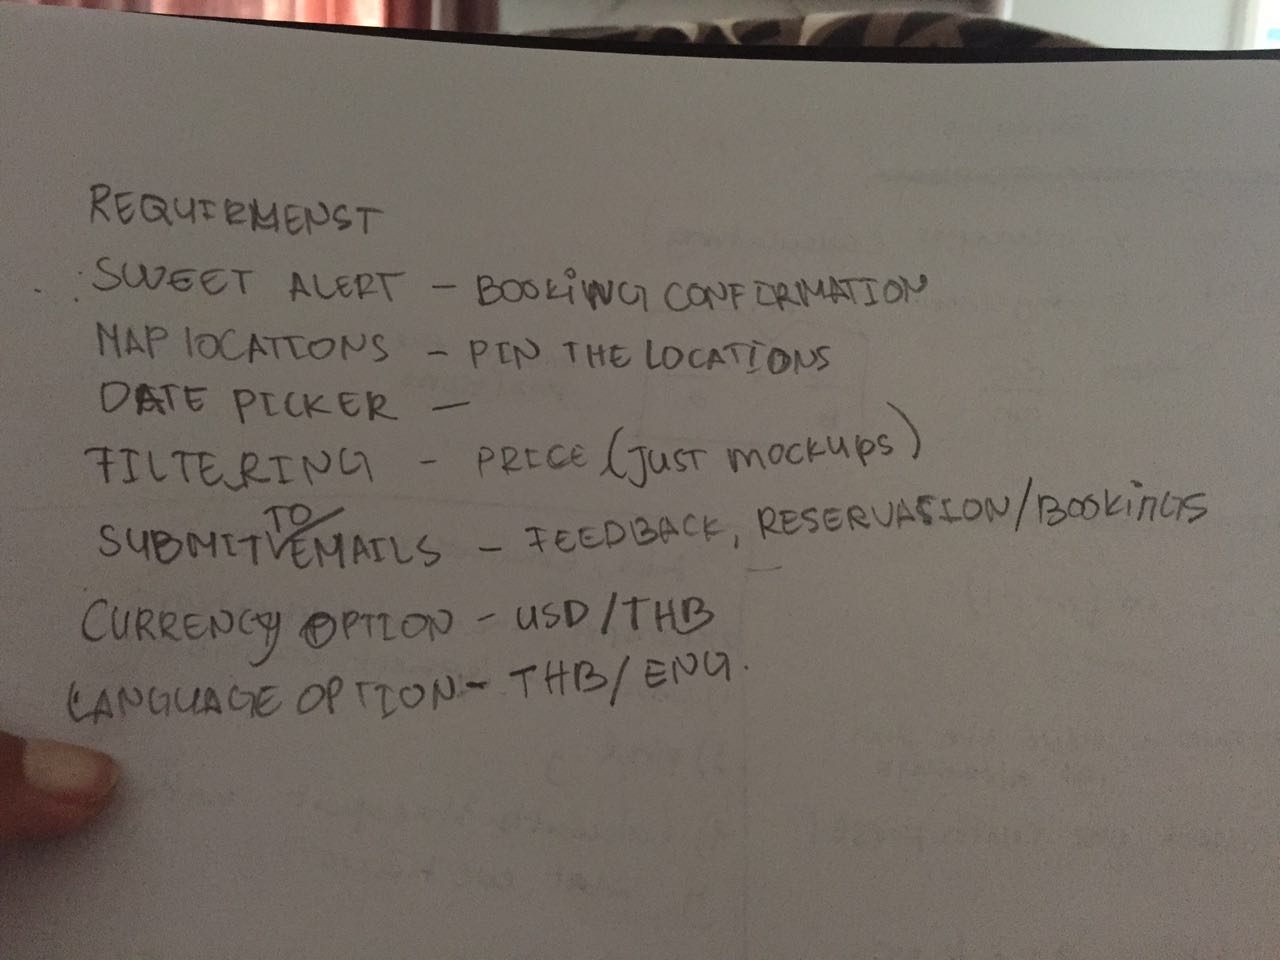 REQUIRMENST
SWEET ALERT - BOOKiNG CONFIRMATION
MAP lOCATIONS - PIN THE LOCATIONS
DATE PICKER -
FILTERING - PRICE (just mockups)
SUBMIT TO EMAILS - FEEDBACK, RESERVASION/BOOKiNGS
CURRENCY OPTION - USD/THB
LANGUAGE OPTION - THB/ENG.